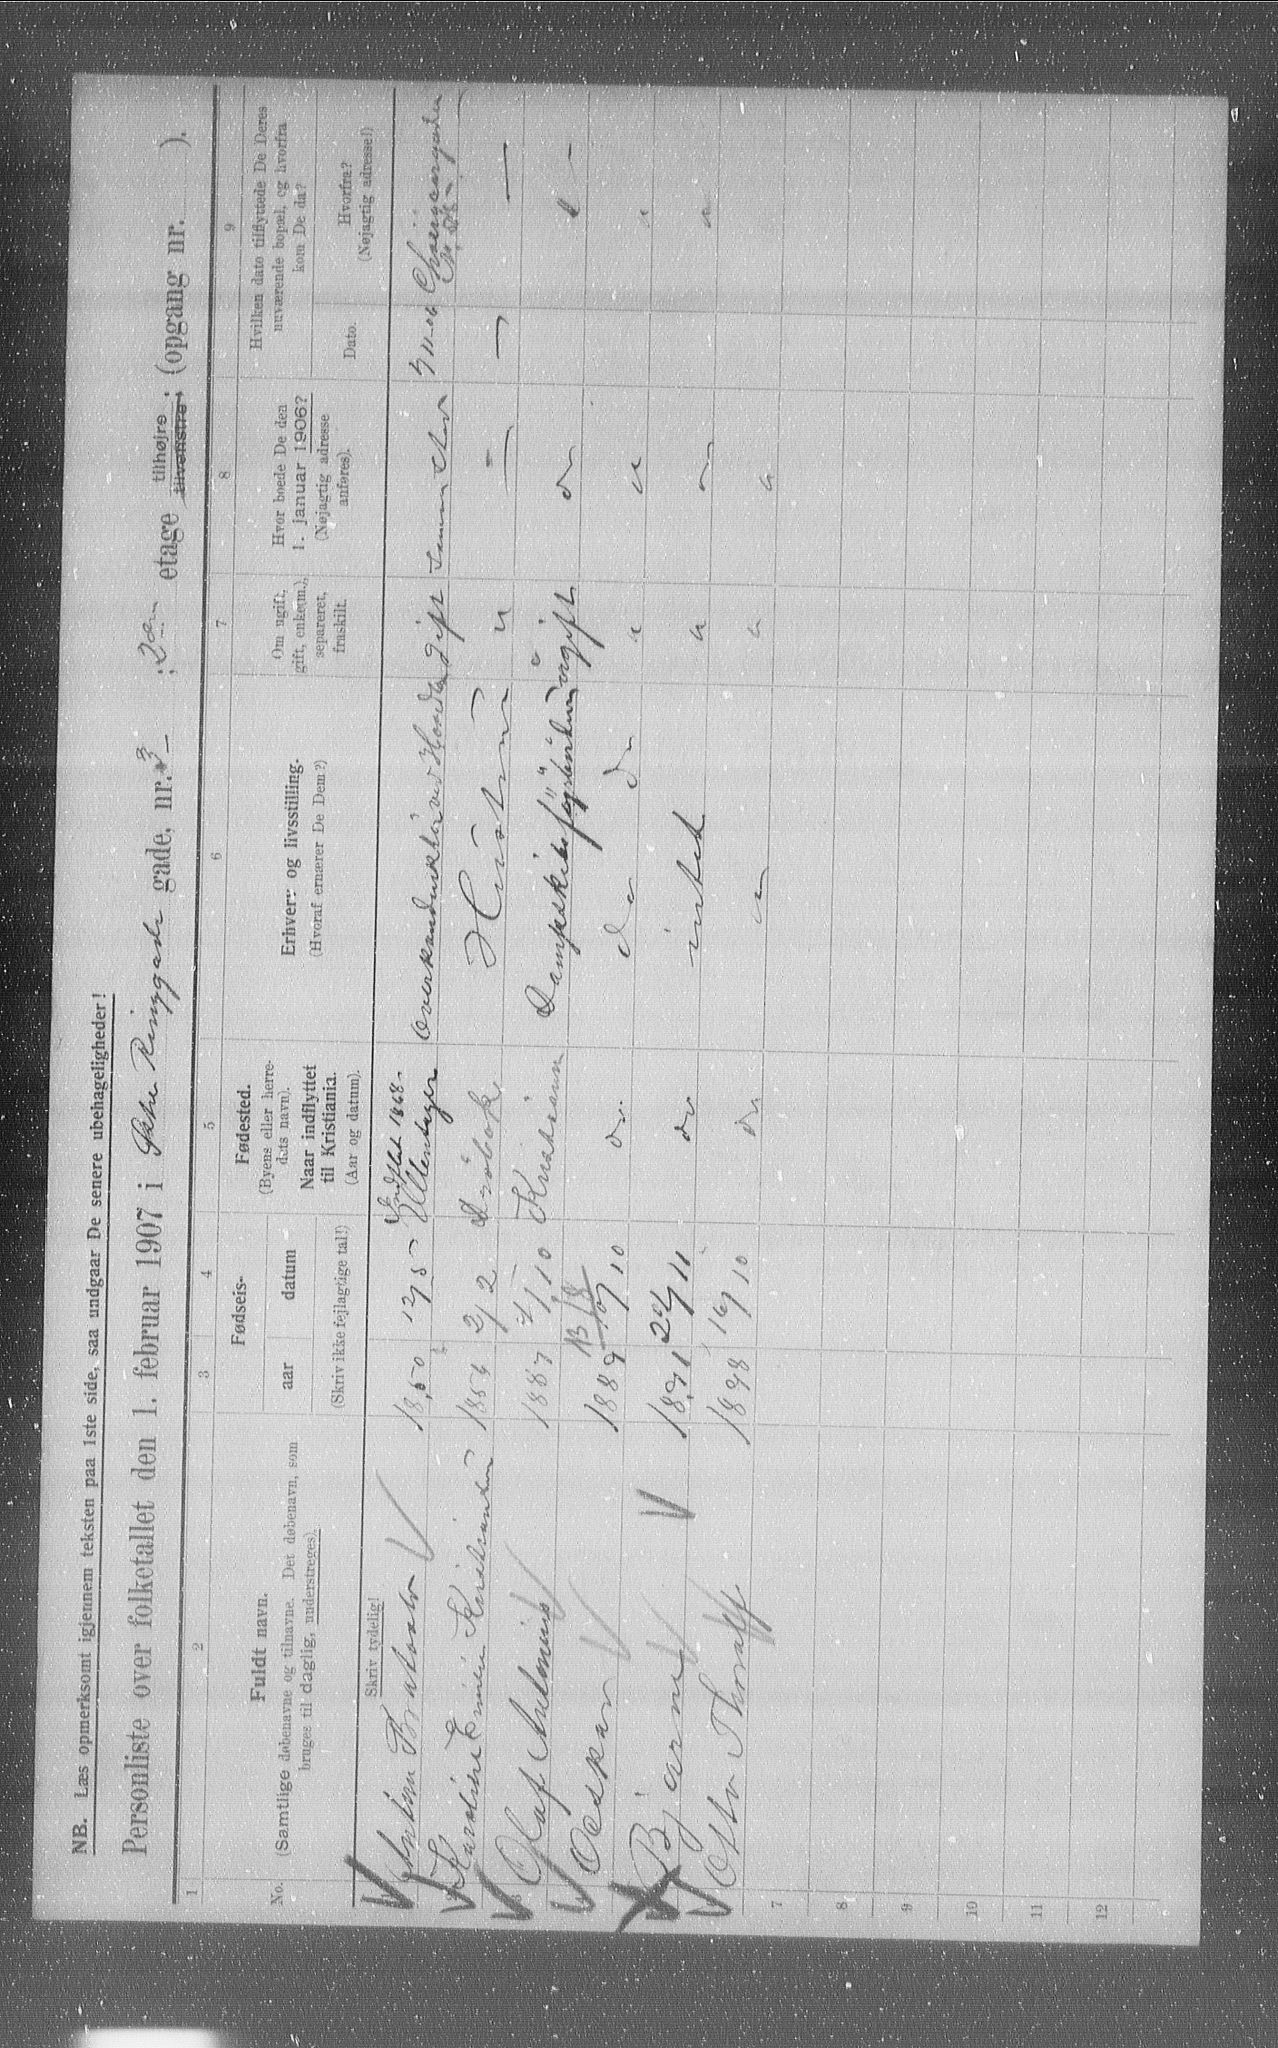 NB. Læs opmerksomt igjennem teksten paa 1ste side, saa undgaar De senere ubehageligheder!
Personliste over folketallet den 1. februar 1907 i Øshe Ringgade gade, nr. 3 ; 2den etage tilhøjre tilvenstre ; (opgang nr. ).
1 2 3 4 5 6 7 8 9
No.
Fuldt navn.
(Samtlige døbenavne og tilnavne. Det døbenavn, som
bruges til daglig, understreges).
Fødsels-
aar datum
Fødested.
(Byens eller herre-
dets navn).
Naar indflyttet
til Kristiania.
(Aar og datum).
Erhverv og livsstilling.
(Hvoraf ernærer De Dem?)
Om ugift,
gift, enke(m.),
separeret,
fraskilt.
Hvor boede De den
1. januar 1906?
(Nøjagtig adresse
anføres).
Hvilken dato tilflyttede De Deres
nuværende bopæl, og hvorfra
kom De da?
Dato.
Hvorfra?
(Nøjagtig adresse!)
Skriv tydelig!
(Skriv ikke fejlagtige tal!)
Indflet 1868
Anton 1850 12/5 Ullensager Overkonduktør ved gift
Karoline Emilie Kristiansen 1854 2/2 Drøbak Hustru "
Olaf Antonius 1887 /10 Kristiania ugift do
Oskar 1889 13/8 10/10 do do do " "
Bjarne 1891 20/11 do intet " do
Otto Thoralf 1898 16/10 do " " "
7
8
9
10
11
12